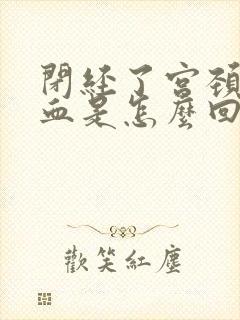 閉經了宮頸
血是怎麼回
歡笑紅塵